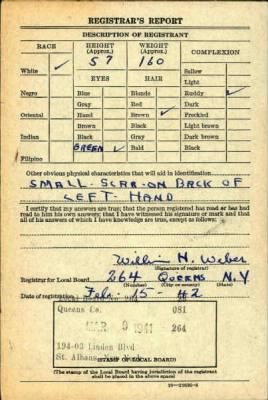 REGISTRAR'S REPORT
DESCRIPTION OF REGISTRANT
RACE HEIGHT (Approx.) WEIGHT (Approx.) COMPLEXION
5 7 160
White ✓ EYES HAIR Sallow
Light
Negro Blue Blonde Ruddy ✓
Gray Red Dark
Oriental Hazel Brown ✓ Freckled
Brown Black Light brown
Indian Black Gray Dark brown
GREEN ✓ Bald Black
Filipino
Other obvious physical characteristics that will aid in identification
SMALL- SCAR-ON BACK OF
LEFT- HAND
I certify that my answers are true; that the person registered has read or has had
read to him his own answers; that I have witnessed his signature or mark and that
all of his answers of which I have knowledge are true, except as follows:
William H. Weber
(Signature of registrar)
Registrar for Local Board 264 QUEENS N.Y
(Number) (City or county) (State)
Date of registration Feb. 15 - 42
Queens Co. 081
MAR 9 1941 264
194-03 Linden Blvd
St. Albans, New York
(STAMP OF LOCAL BOARD)
(The stamp of the Local Board having jurisdiction of the registrant
shall be placed in the above space)